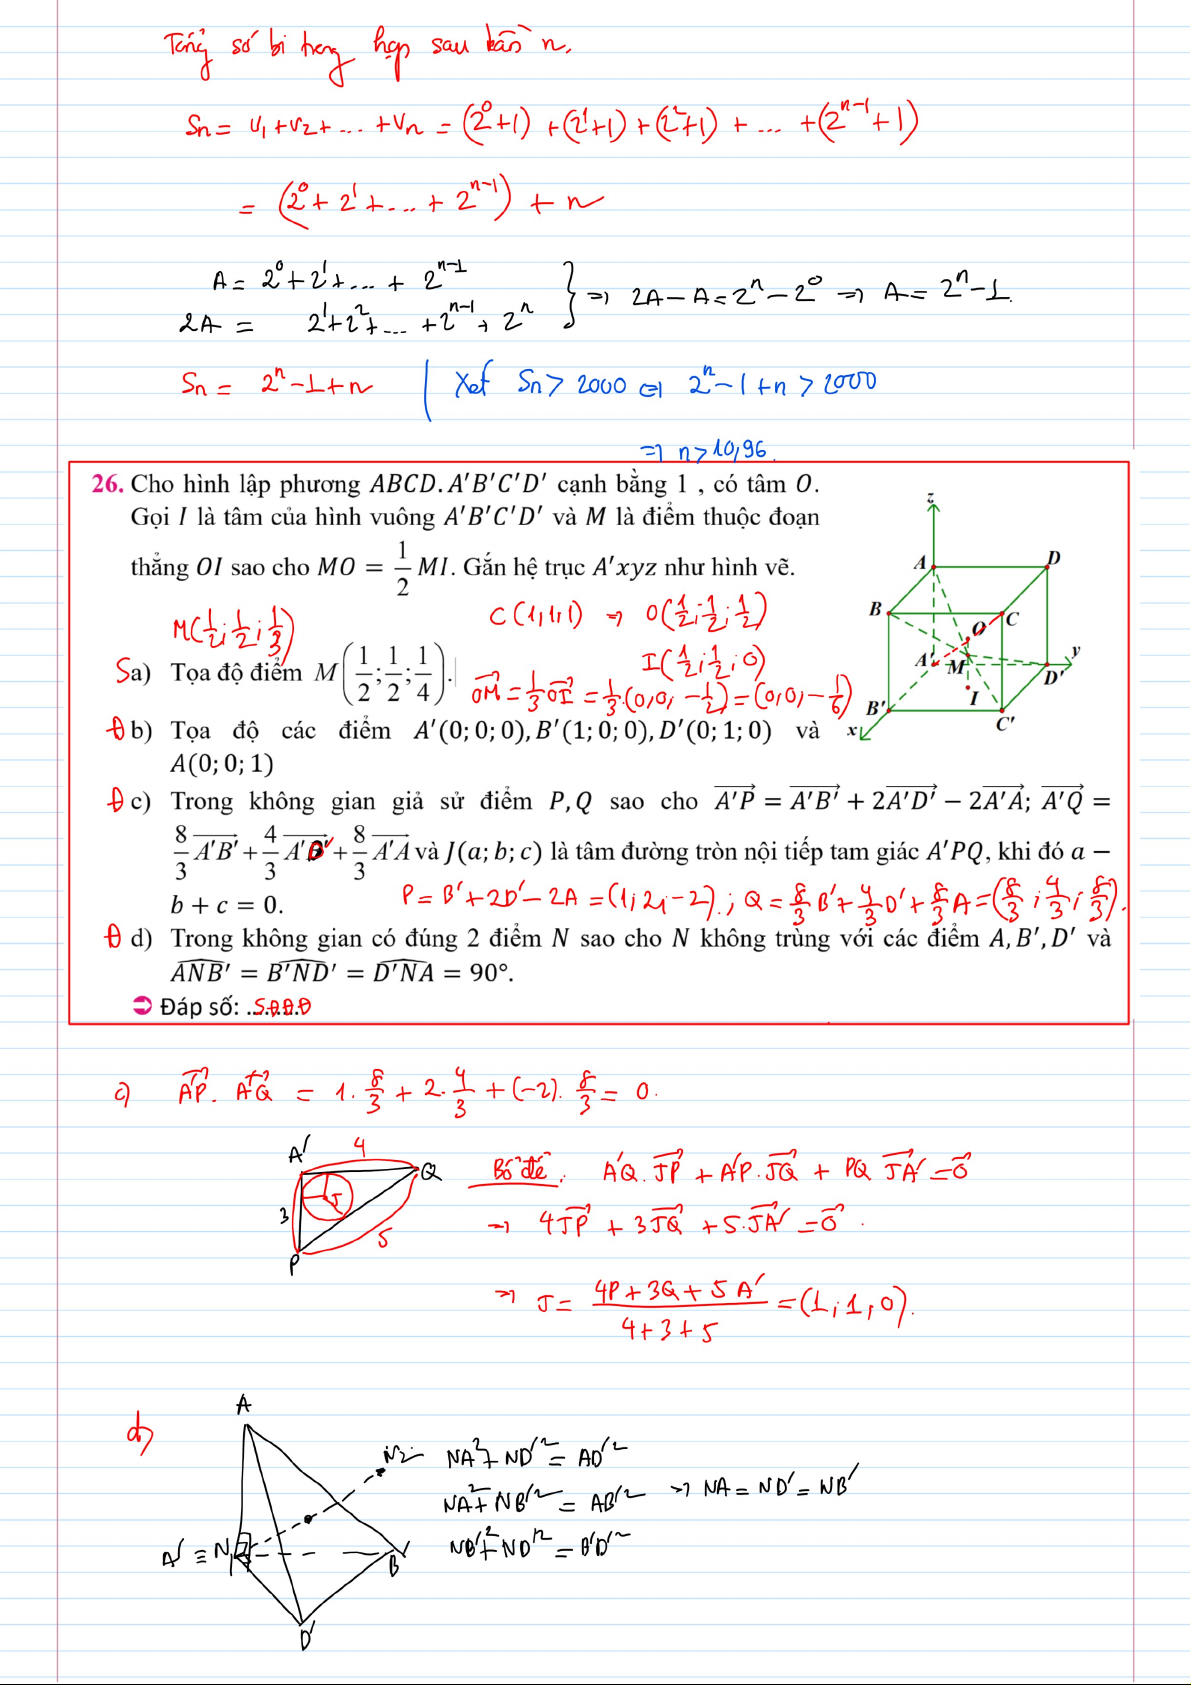 Tổng số bi trong hộp sau lần n.
Sn = v₁ + v₂ + ... + vn = (2⁰+1) + (2¹+1) + (2²+1) + ... + (2ⁿ⁻¹+1)
= (2⁰ + 2¹ + ... + 2ⁿ⁻¹) + n
A = 2⁰ + 2¹ + ... + 2ⁿ⁻¹
2A = 2¹ + 2² + ... + 2ⁿ⁻¹ + 2ⁿ } ⇒ 2A − A = 2ⁿ − 2⁰ ⇒ A = 2ⁿ − 1.
Sn = 2ⁿ − 1 + n | Xét Sn > 2000 ⇔ 2ⁿ − 1 + n > 2000
⇒ n > 10,96.
26. Cho hình lập phương ABCD.A'B'C'D' cạnh bằng 1 , có tâm O.
Gọi I là tâm của hình vuông A'B'C'D' và M là điểm thuộc đoạn
thẳng OI sao cho MO = 1/2 MI. Gắn hệ trục A'xyz như hình vẽ.
z
A
D
B
C
O
A'
M
y
D'
B'
I
x
C'
M(1/2; 1/2; 1/3)
C(1,1,1) → O(1/2; 1/2; 1/2)
I(1/2; 1/2; 0)
S a) Tọa độ điểm M(1/2; 1/2; 1/4).
OM⃗ = 1/3 OI⃗ = 1/3.(0,0, −1/2) = (0,0, −1/6)
Đ b) Tọa độ các điểm A'(0; 0; 0), B'(1; 0; 0), D'(0; 1; 0) và
A(0; 0; 1)
Đ c) Trong không gian giả sử điểm P, Q sao cho A'P⃗ = A'B'⃗ + 2A'D'⃗ − 2A'A⃗; A'Q⃗ =
8/3 A'B'⃗ + 4/3 A'D'⃗ + 8/3 A'A⃗ và J(a; b; c) là tâm đường tròn nội tiếp tam giác A'PQ, khi đó a −
b + c = 0.
P = B' + 2D' − 2A = (1; 2; −2). ; Q = 8/3 B' + 4/3 D' + 8/3 A = (8/3; 4/3; 8/3).
Đ d) Trong không gian có đúng 2 điểm N sao cho N không trùng với các điểm A, B', D' và
ANB' = B'ND' = D'NA = 90°.
Đáp số: ..SĐĐĐ
c) A'P⃗ . A'Q⃗ = 1. 8/3 + 2. 4/3 + (−2). 8/3 = 0.
A'
4
Q
J
3
5
P
Bổ đề: A'Q.JP⃗ + A'P.JQ⃗ + PQ JA'⃗ = 0⃗
⇒ 4JP⃗ + 3JQ⃗ + 5.JA'⃗ = 0⃗.
⇒ J = (4P + 3Q + 5A')/(4+3+5) = (1, 1, 0).
d)
A
N₂
A' ≡ N₁
B'
D'
NA² + ND'² = AD'²
NA² + NB'² = AB'² ⇒ NA = ND' = NB'
NB'² + ND'² = B'D'²